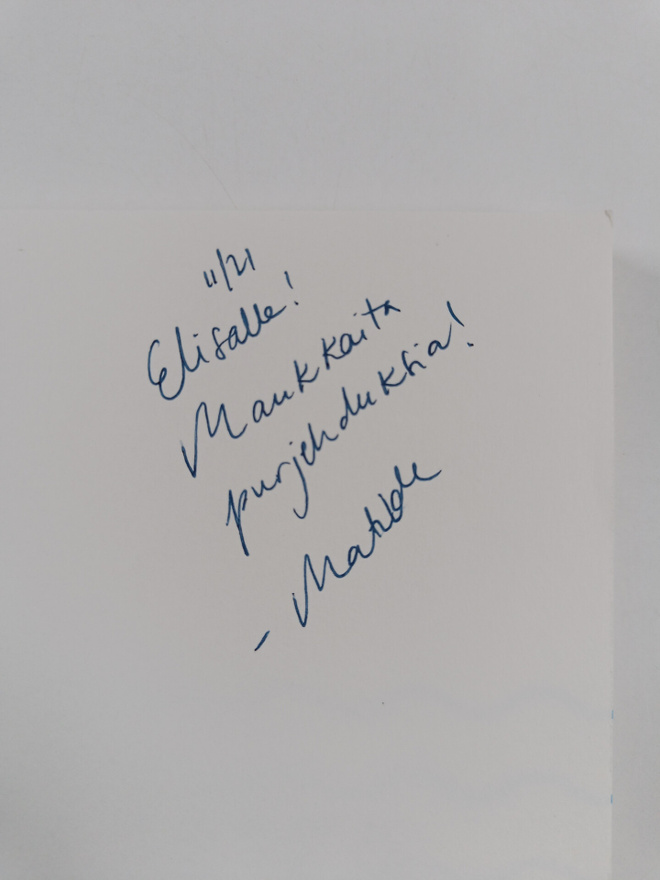 11/21
Elisalle!
Maukkaita
purjehduksia!
- Matilde